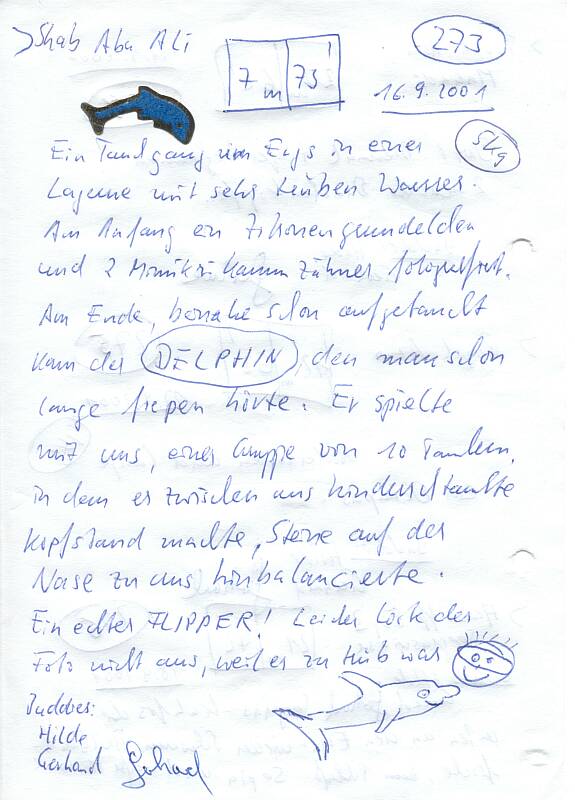 Shab Aba Ali
7 m 73'
273
16.9.2001
5kg
Ein Tauchgang von Ergs in einer
Lagune mit sehr trüben Wasser.
Am Anfang ein Zitronengrundelchen
und 2 Kammzähner fotografiert.
Am Ende, beinahe schon aufgetaucht
kam der DELPHIN, den man schon
lange fiepen hörte. Er spielte
mit uns, einer Gruppe von 10 Tauchern,
in dem er zwischen uns hindurchtauchte
Kopfstand machte, Steine auf der
Nase zu uns hinbalancierte.
Ein echter FLIPPER! Leider löste das
Foto nicht aus, weil es zu trüb war
Buddies:
Hilde
Gerhard